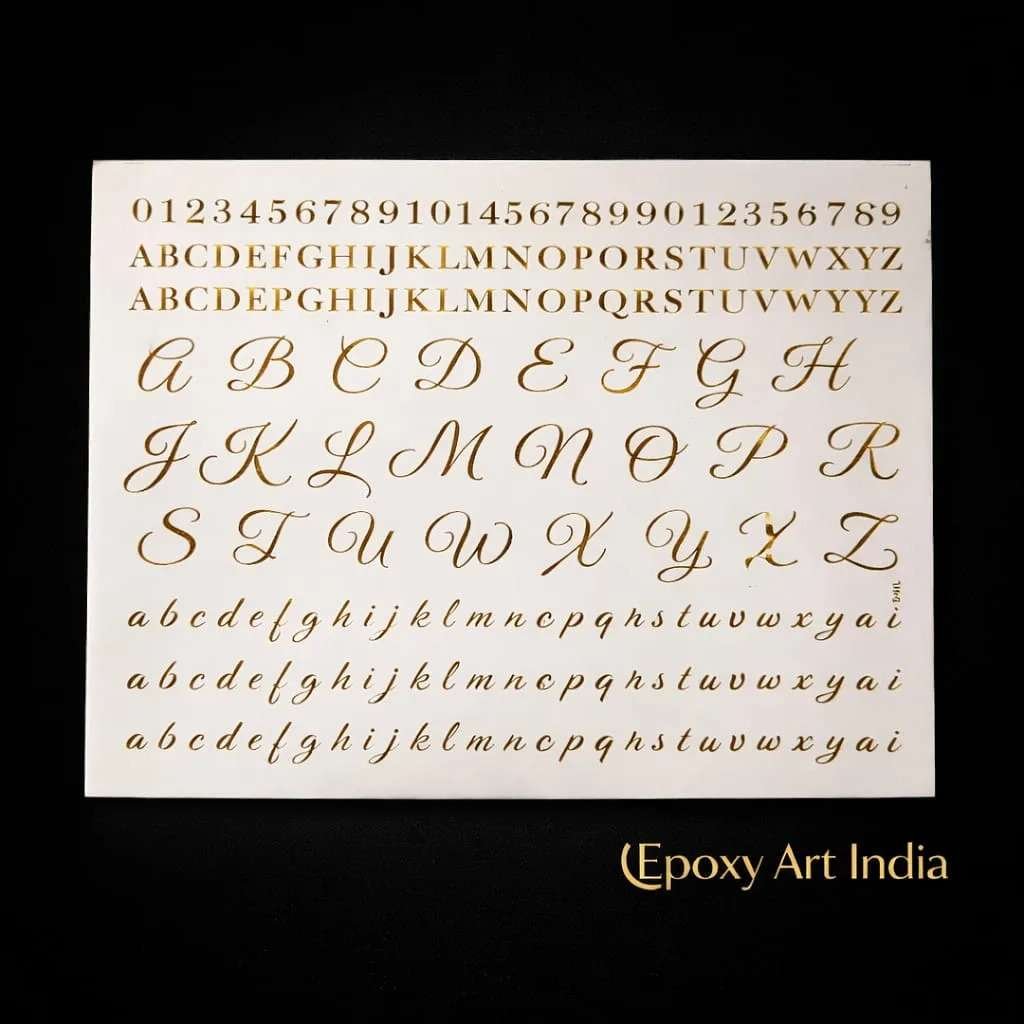 01234567891014567899012356789
ABCDEFGHIJKLMNOPORSTUVWXYZ
ABCDEPGHIJKLMNOPQRSTUVWYYZ
A B C D E F G H
J K L M N O P R
S T U W X Y Z Z
a b c d e f g h i j k l m n c p q h s t u v w x y a i
a b c d e f g h i j k l m n c p q h s t u v w x y a i
a b c d e f g h i j k l m n c p q h s t u v w x y a i
Epoxy Art India